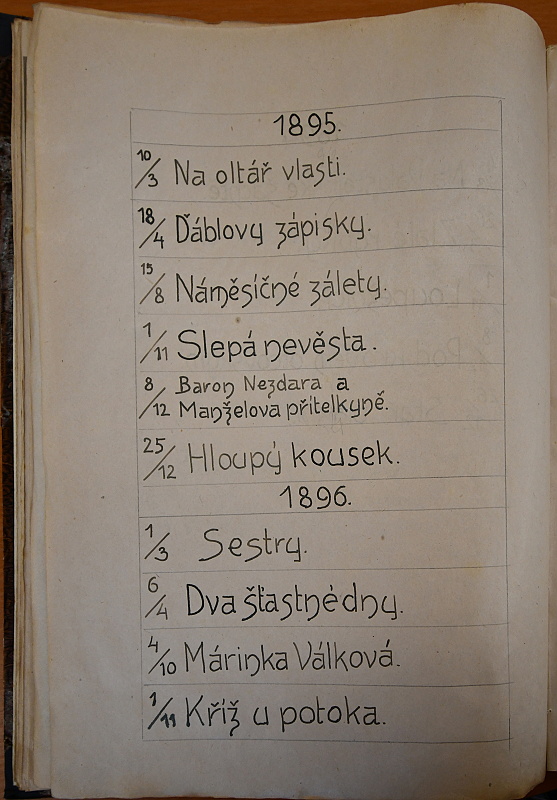 1895.
10/3 Na oltář vlasti.
18/4 Ďáblovy zápisky.
15/8 Náměsíčné zálety.
1/11 Slepá nevěsta.
8/12 Baron Nezdara a
Manželova přítelkyně.
25/12 Hloupý kousek.
1896.
1/3 Sestry.
6/4 Dva šťastnédny.
4/10 Márinka Válková.
1/11 Kříž u potoka.